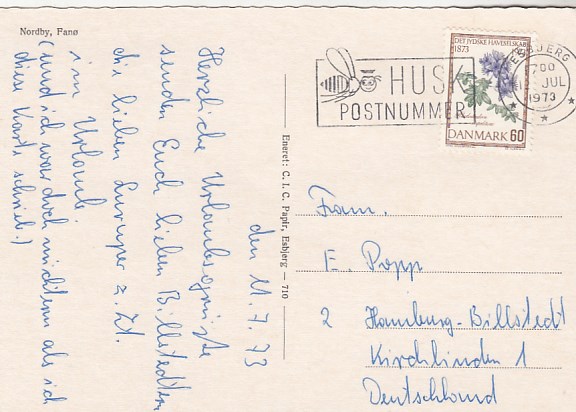 Nordby, Fanø
den 11.7.73
Herzliche Urlaubsgrüße
senden Euch lieben Billstedtern
die lieben Luruper z. Zt.
im Urlaub.
(und ich war doch nüchtern als ich
diese Karte schrieb.)
Eneret: C. I. C. Papir, Esbjerg — 710
HUSK
POSTNUMMER
ESBJERG
700
JUL
1973
DET JYDSKE HAVESELSKAB
1873
DANMARK 60
Fam.
E. Popp
2 Hamburg-Billstedt
Kirchlinden 1
Deutschland